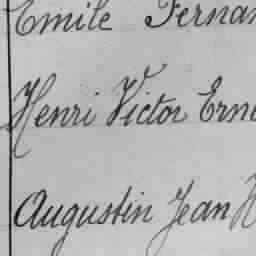 Emile Fernan
Henri Victor Erne
Augustin Jean H